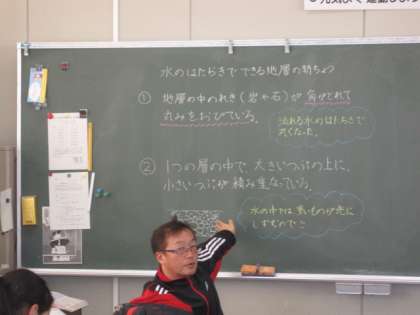 水のはたらきでできる地層の特ちょう
① 地層の中のれき(岩や石)が角がとれて
丸みをおびている。
流れる水のはたらきで
丸くなった。
② 1つの層の中で、大きいつぶの上に、
小さいつぶが積み重なっている。
水の中では重いものが先に
しずむので